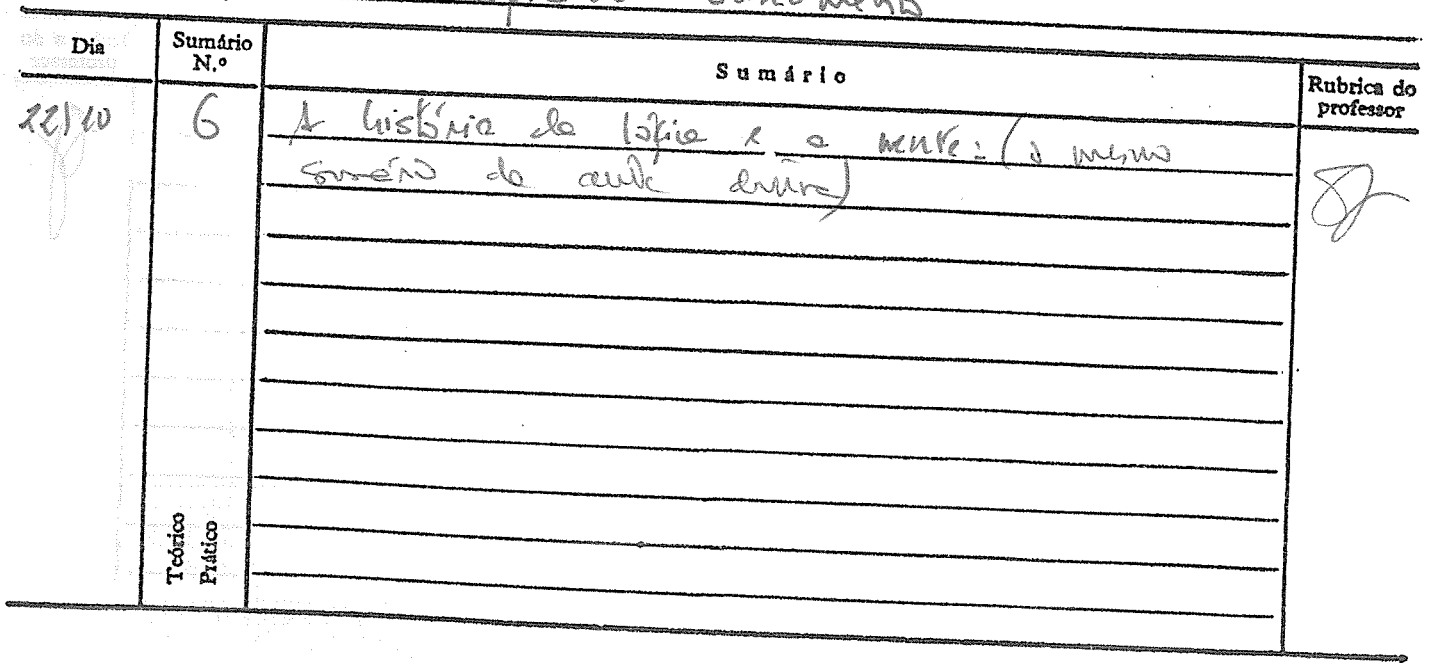 Dia
Sumário N.º
Sumário
Rubrica do professor
22/10
6
A história da lógica e a mente: (o mesmo
sumário da aula
Teórico
Prático